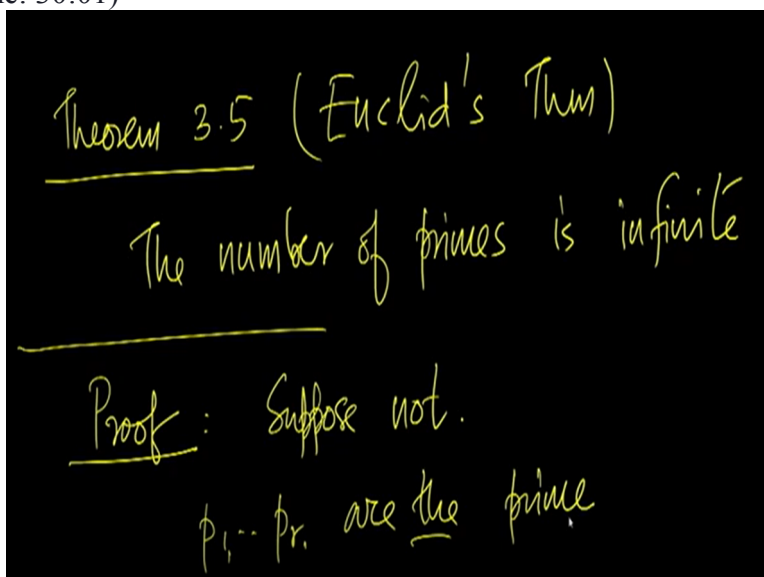 Theorem 3.5 (Euclid's Thm)
The number of primes is infinite
Proof: Suppose not.
p1, ... pr. are the prime